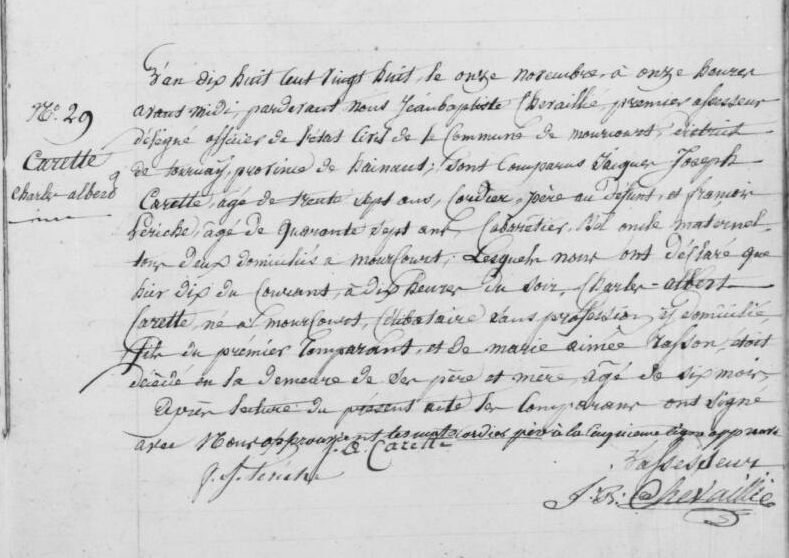 N.o 29
Carette
Charles albert
L'an dix huit cent vingt huit, le onze novembre, à onze heures
avant midi, pardevant nous Jean baptiste Chevaillié, premier assesseur
désigné officier de l'état Civil de la Commune de mourcourt, district
de tournay, province de hainaut; sont Comparus Jacques Joseph
Carette, agé de trente sept ans, Cordier, père au Défunt, et francois
Leriche, agé de Quarante sept ans, Cabaretier, bel oncle maternel
tous deux domiciliés à mourcourt; Lesquels nous ont déclaré que
hier dix du Courant, à dix heures du soir, Charles-albert
Carette, né à mourcourt, Célibataire sans profession, y domicilié
fils du prémier Comparant, et de marie aimée, étoit
décédé en la demeure de ses père et mère, agé de six mois,
Après lecture du présent acte les Comparans ont signé
avec Nous approuvant les mots cordier père à la Cinquieme ligne approuvé
J. J. Carette
f. J. Leriche
L'assesseur
J. B. Chevaillié